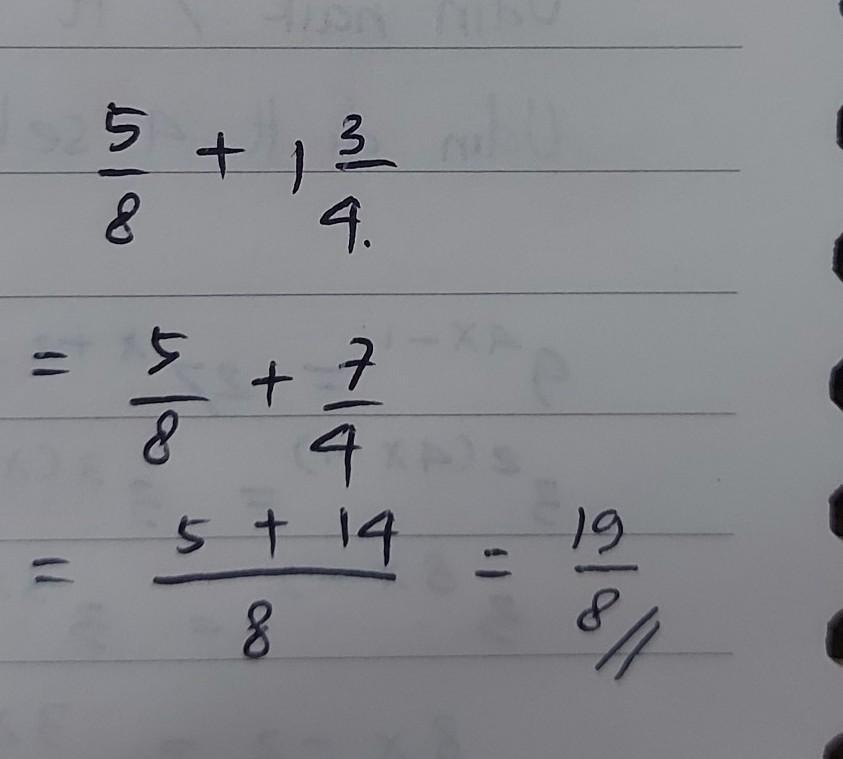 5/8 + 1 3/4.
= 5/8 + 7/4
= (5 + 14)/8 = 19/8 //